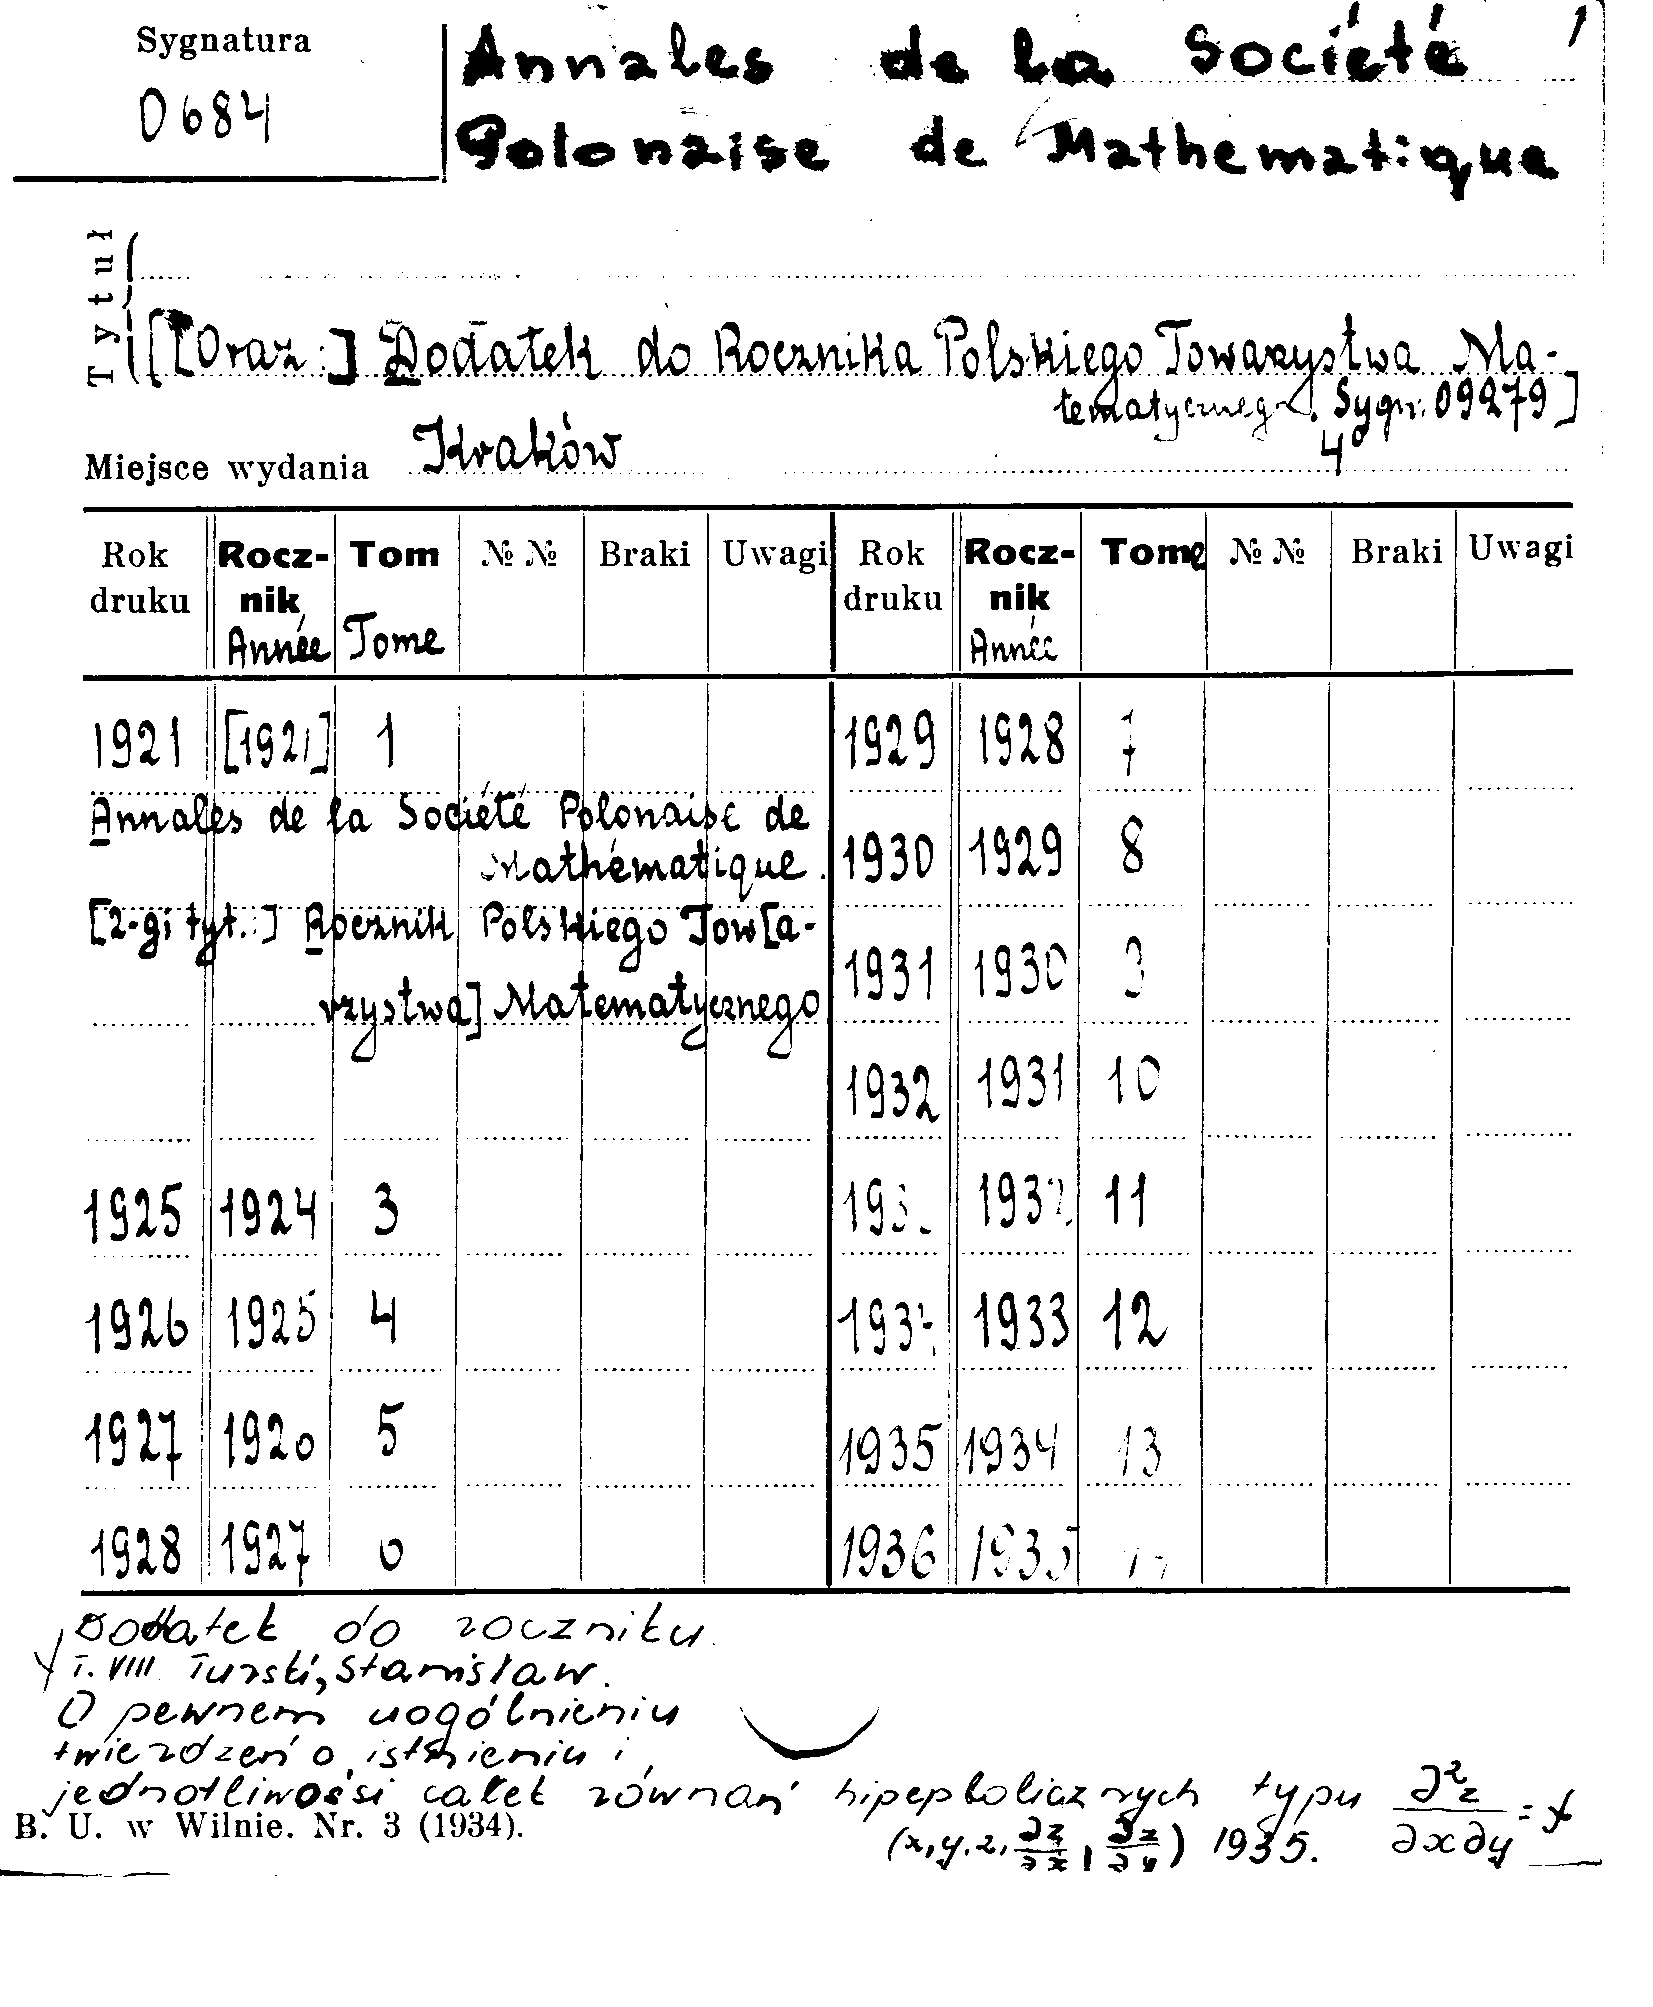 Sygnatura
0684
1
Annales de la Société
Polonaise de Mathematique
Tytuł
[[Oraz:] Dodatek do Rocznika Polskiego Towarzystwa Ma-
tematycznego. Sygn. 09279]
Miejsce wydania Kraków 4°
Rok druku Rocz-nik Année Tom Tome № № Braki Uwagi Rok druku Rocz-nik Année Tome № № Braki Uwagi
1921 [1921] 1 1929 1928 7
Annales de la Société Polonaise de
Mathématique. 1930 1929 8
[2-gi tyt.:] Rocznik Polskiego Tow[a-
rzystwa] Matematycznego 1931 1930
1932 1931 10
1925 1924 3 1932 11
1926 1925 4 1933 12
1927 5 1935 1934 13
1928 1927 1936 1935
Dodatek do roczniku
T. VIII Turski, Stanisław.
O pewnem uogólnieniu
twierdzeń o istnieniu i
jednotliwości całek równań hipepbolicznych typu ∂²z/∂x∂y = f
(x,y,z,∂z/∂x,∂z/∂y) 1935.
B. U. w Wilnie. Nr. 3 (1934).